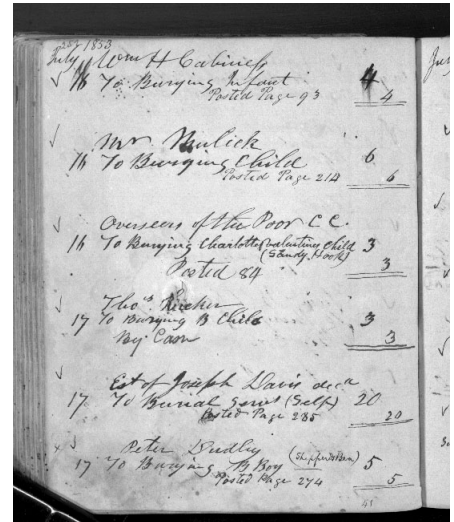 July 1853
Wm H Cabiness
16 To Burying Infant 4
Posted Page 93 4
Mr
16 To Burying Child 6
Posted Page 214 6
Overseers of the Poor C C.
16 To Burying Charlotte Valentines Child 3
(Sandy Hook)
Posted 84 3
Thos Rucker
17 To Burying B Child 3
By Cash 3
Est of Joseph Davis decd
17 To Burial Servt (Self) 20
Posted Page 285 20
Peter Dudley
17 To Burying B Boy 5
Posted Page 274 5